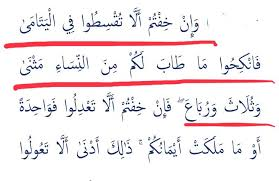 وَإِنْ خِفْتُمْ أَلَّا تُقْسِطُوا فِي الْيَتَامَىٰ
فَانْكِحُوا مَا طَابَ لَكُمْ مِنَ النِّسَاءِ مَثْنَىٰ
وَثُلَاثَ وَرُبَاعَ ۖ فَإِنْ خِفْتُمْ أَلَّا تَعْدِلُوا فَوَاحِدَةً
أَوْ مَا مَلَكَتْ أَيْمَانُكُمْ ۚ ذَٰلِكَ أَدْنَىٰ أَلَّا تَعُولُوا